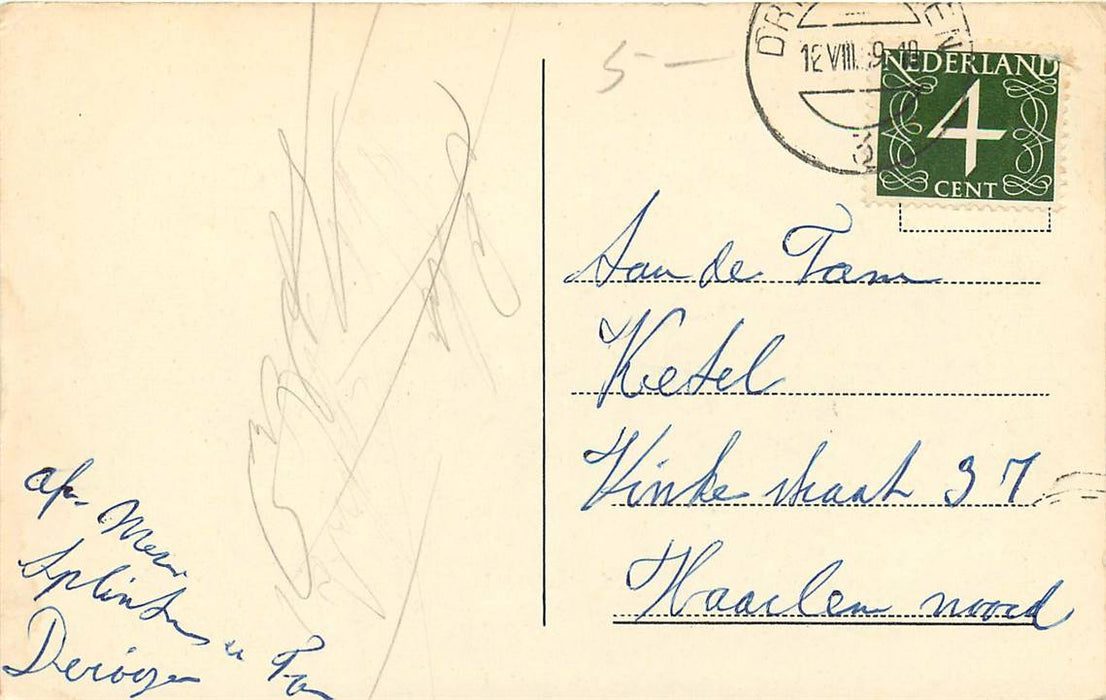 5 -
12 VIII. 9.-19
NEDERLAND
4
CENT
Aan de Fam
Ketel
Vinkestraat 37
Haarlem noord
afz. Mevr
Splinter
en Fam